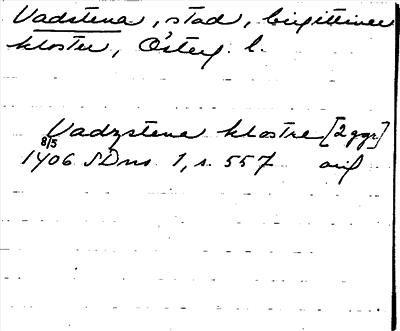 Vadstena, stad, birgittiner
kloster, Österg. l.
Vadzstena klostre [2 ggr]
8/5
1406 SDns 1, s. 557 orig